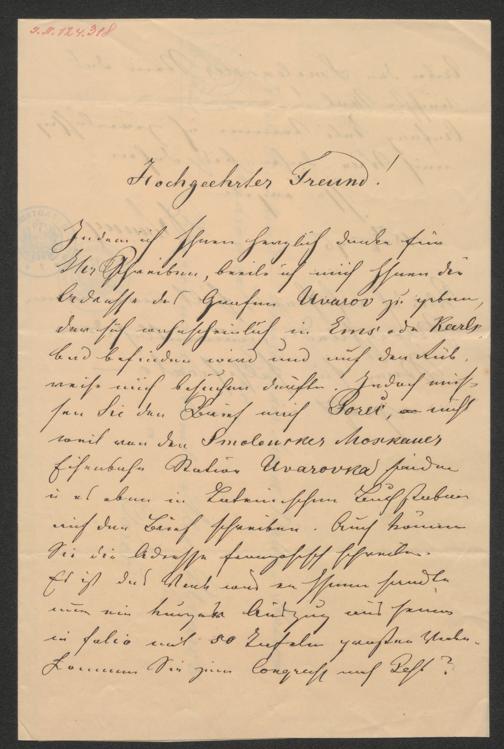 I.N. 124.318
Hochgeehrter Freund!
Indem ich Ihnen herzlich danke für
Ihr Schreiben, beeile ich mich Ihnen die
Adresse des Grafen Uvarov zu geben,
der sich wahrscheinlich in Ems oder Karls
bad befinden wird und auf der Rük
reise mich besuchen dürfte. Jedoch müs-
sen Sie den Brief nach Poreč, nicht
weit von der Smolensker Moskauer
Eisenbahn Station Uvarovka senden
u es eben in Lateinischen Buchstaben
auf den Brief schreiben. Auch können
Sie die Adresse französisch schreiben.
Es ist das Werk was er Ihnen sandte
nur ein kurzer Auszug aus seinem
in folio mit 50 Tafeln großen Werke.
Kommen Sie zum Congress nach Pest?